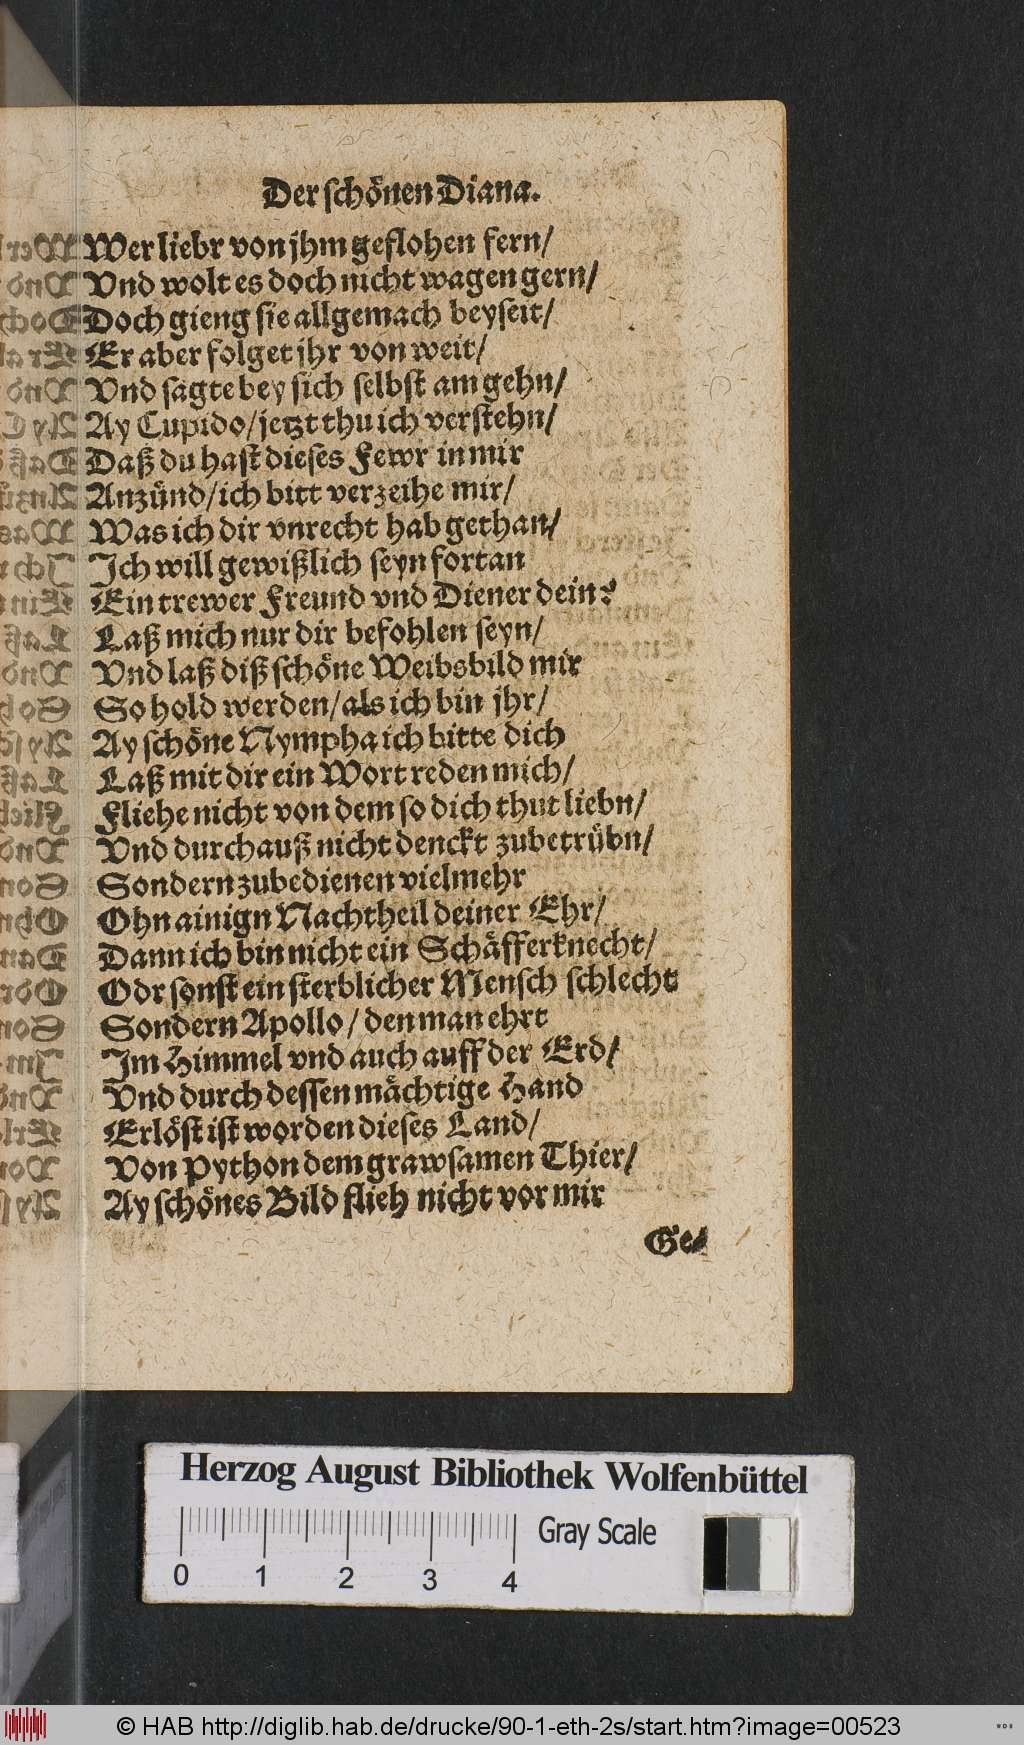 Der schönen Diana.
Wer liebr von jhm geflohen fern/
Vnd wolt es doch nicht wagen gern/
Doch gieng sie allgemach beyseit/
Er aber folget jhr von weit/
Vnd sagte bey sich selbst am gehn/
Ay Cupido/jetzt thu ich verstehn/
Daß du hast dieses Fewr in mir
Anzünd/ich bitt verzeihe mir/
Was ich dir vnrecht hab gethan/
Ich will gewißlich seyn fortan
Ein trewer Freund vnd Diener dein?
Laß mich nur dir befohlen seyn/
Vnd laß diß schöne Weibsbild mir
So hold werden/als ich bin jhr/
Ay schöne Nympha ich bitte dich
Laß mit dir ein Wort reden mich/
Fliehe nicht von dem so dich thut liebn/
Vnd durchauß nicht denckt zubetrübn/
Sondern zubedienen vielmehr
Ohn ainign Nachtheil deiner Ehr/
Dann ich bin nicht ein Schäfferknecht/
Odr sonst ein sterblicher Mensch schlecht
Sondern Apollo/ den man ehrt
Im Himmel vnd auch auff der Erd/
Vnd durch dessen mächtige Hand
Erlöst ist worden dieses Land/
Von Python dem grawsamen Thier/
Ay schönes Bild flieh nicht vor mir
Ge-
Herzog August Bibliothek Wolfenbüttel
Gray Scale
0 1 2 3 4
© HAB http://diglib.hab.de/drucke/90-1-eth-2s/start.htm?image=00523